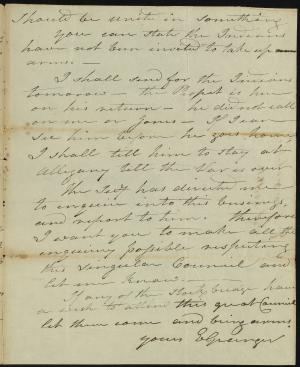 should be unite in something
You can state the Indians
have not been invited to take up
arms —
I shall send for the Indians
tomorrow — the Prophet is here
on his return — he did not call
on me or Jones — If I can
see him before he goes home,
I shall tell him to stay at
Allegany till the War is over
The Secy has directed me
to enquire into this business,
and report to him. therefore
I want you to make all the
enquiry possible respecting
this singular Council and
let me know —
If any of the Stockbridge have
a wish to attend this great Council
let them come and bring arms
yours E Granger